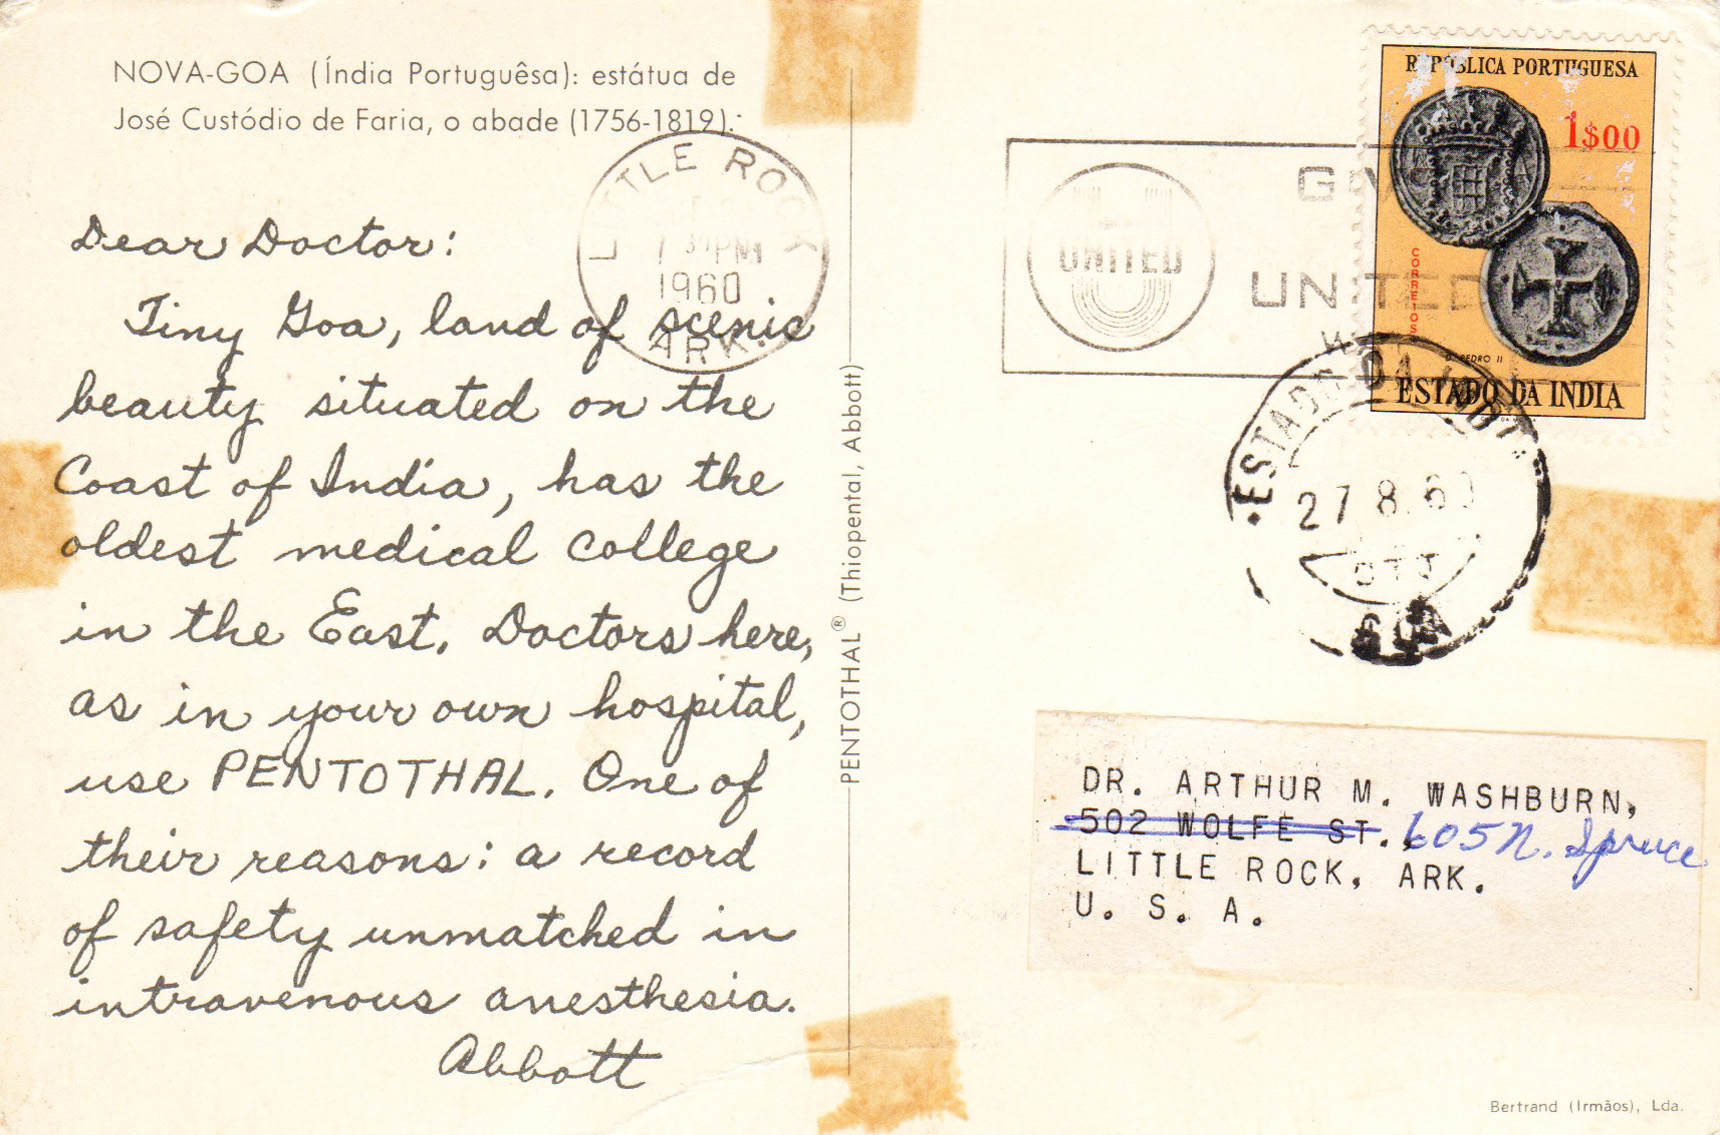 NOVA-GOA (Índia Portuguêsa): estátua de
José Custódio de Faria, o abade (1756-1819).
LITTLE ROCK
PM
1960
ARK.
Dear Doctor:
Tiny Goa, land of scenic
beauty situated on the
Coast of India, has the
oldest medical college
in the East. Doctors here,
as in your own hospital,
use PENTOTHAL. One of
their reasons: a record
of safety unmatched in
intravenous anesthesia.
Abbott
PENTOTHAL® (Thiopental, Abbott)
UNITED
UNITED
REPÚBLICA PORTUGUESA
1$00
CORREIOS
D. PEDRO II
ESTADO DA INDIA
ESTADO DA INDIA
27 8 60
DR. ARTHUR M. WASHBURN,
502 WOLFE ST. 605 N. Spruce
LITTLE ROCK, ARK.
U. S. A.
Bertrand (Irmãos), Lda.